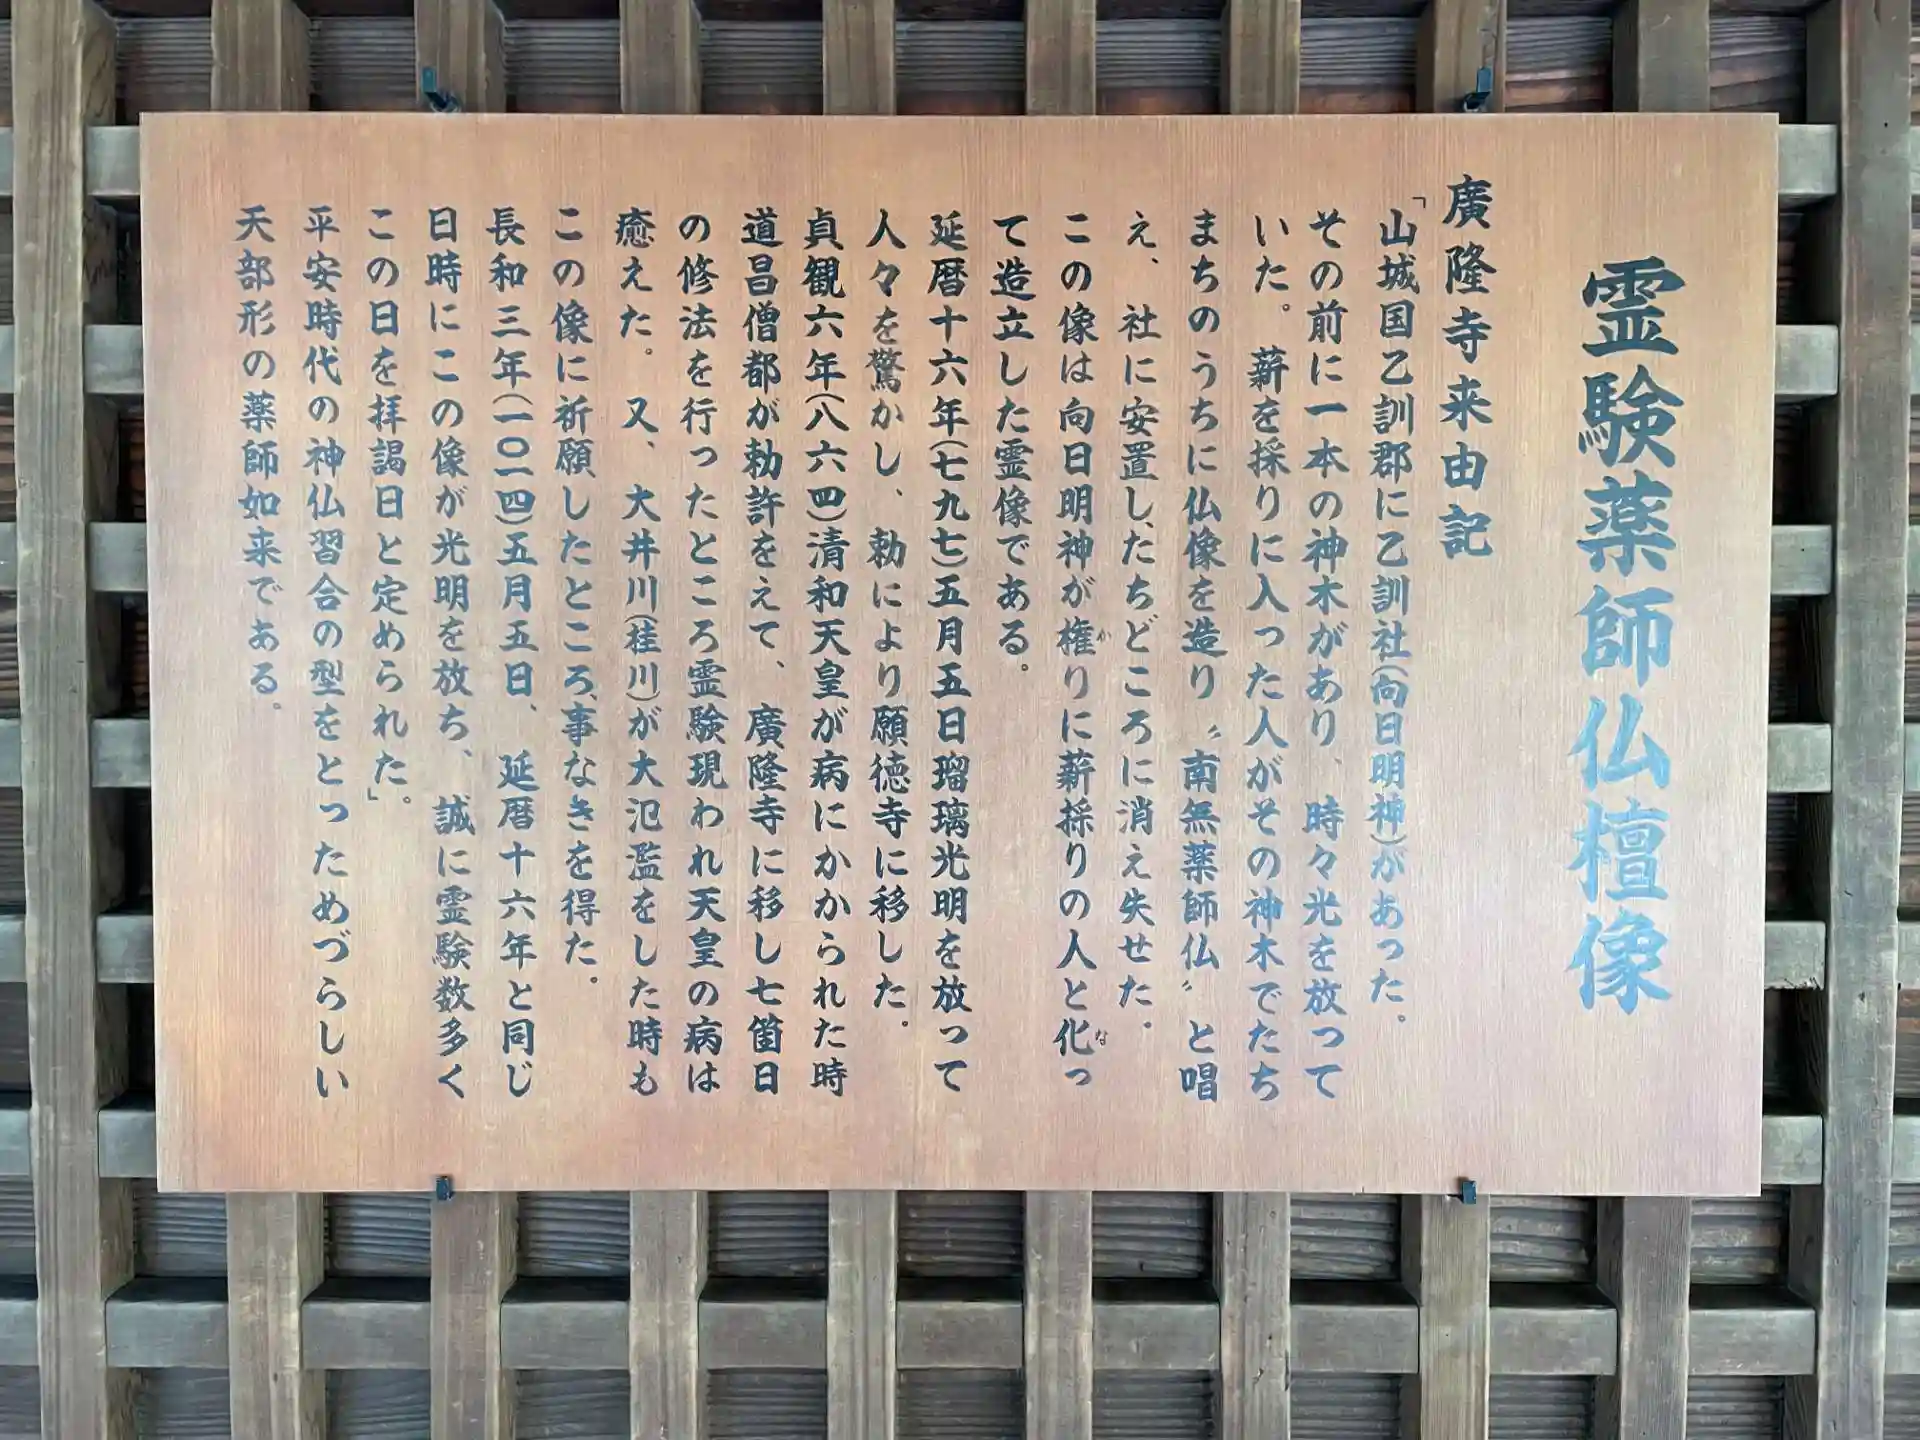 霊験薬師仏檀像
廣隆寺来由記
「山城国乙訓郡に乙訓社(向日明神)があった。
その前に一本の神木があり、時々光を放つて
いた。薪を採りに入った人がその神木でたち
まちのうちに仏像を造り〝南無薬師仏〟と唱
え、社に安置し、たちどころに消え失せた。
この像は向日明神が権(か)りに薪採りの人と化(な)っ
て造立した霊像である。
延暦十六年(七九七)五月五日瑠璃光明を放って
人々を驚かし、勅により願徳寺に移した。
貞観六年(八六四)清和天皇が病にかかられた時
道昌僧都が勅許をえて、廣隆寺に移し七箇日
の修法を行ったところ霊験現われ天皇の病は
癒えた。又、大井川(桂川)が大氾濫をした時も
この像に祈願したところ、事なきを得た。
長和三年(一〇一四)五月五日、延暦十六年と同じ
日時にこの像が光明を放ち、誠に霊験数多く
この日を拝謁日と定められた」。
平安時代の神仏習合の型をとっためづらしい
天部形の薬師如来である。